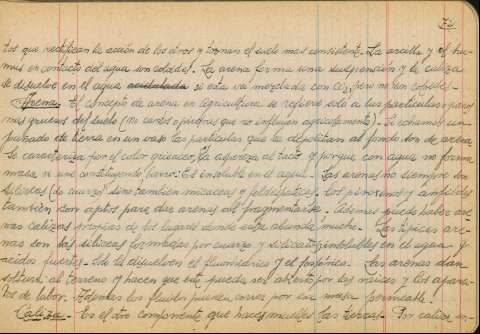 72
tos que rectifican la acción de los otros y tornan el suelo mas consistente. La arcilla y el hu-
mus en contacto del agua son coloides. La arena forma una suspension y la caliza
se disuelve en el agua acidulada si esta va mezclada con CO2 pero no son coloides.
Arena. El concepto de arena en agricultura se refiere solo a las particulas
mas gruesas del suelo (no cantos o piedras que no influyen agricolamente). Si echamos un
puñado de tierra en un vaso las particulas que se depositan al fondo son de arena.
Se caracteriza por el color grisaceo, la aspereza al tacto y porque con agua no forma
masa ni une constituyendo barro. Es insoluble en el agua. Las arenas no siempre son
siliceas (de cuarzo) sino tambien micaceas y feldespaticas. Los piroxenos y anfiboles
tambien son aptos para dar arenas al fragmentarse. Ademas puede haber are-
nas calizas propias de los lugares donde esta abunda mucho. Las tipicas are-
nas son las siliceas formadas por cuarzo y silicatos insolubles en el agua y
acidos fuertes. Solo la disuelven el fluorhidrico y el fosforico. Las arenas dan
soltura al terreno y hacen que este pueda ser abierto por las raices y los apara-
tos de labor. Ademas los fluidos pueden correr por esa masa permeable.
Caliza. Es el otro componente que hace muelles las tierras. Por caliza en-